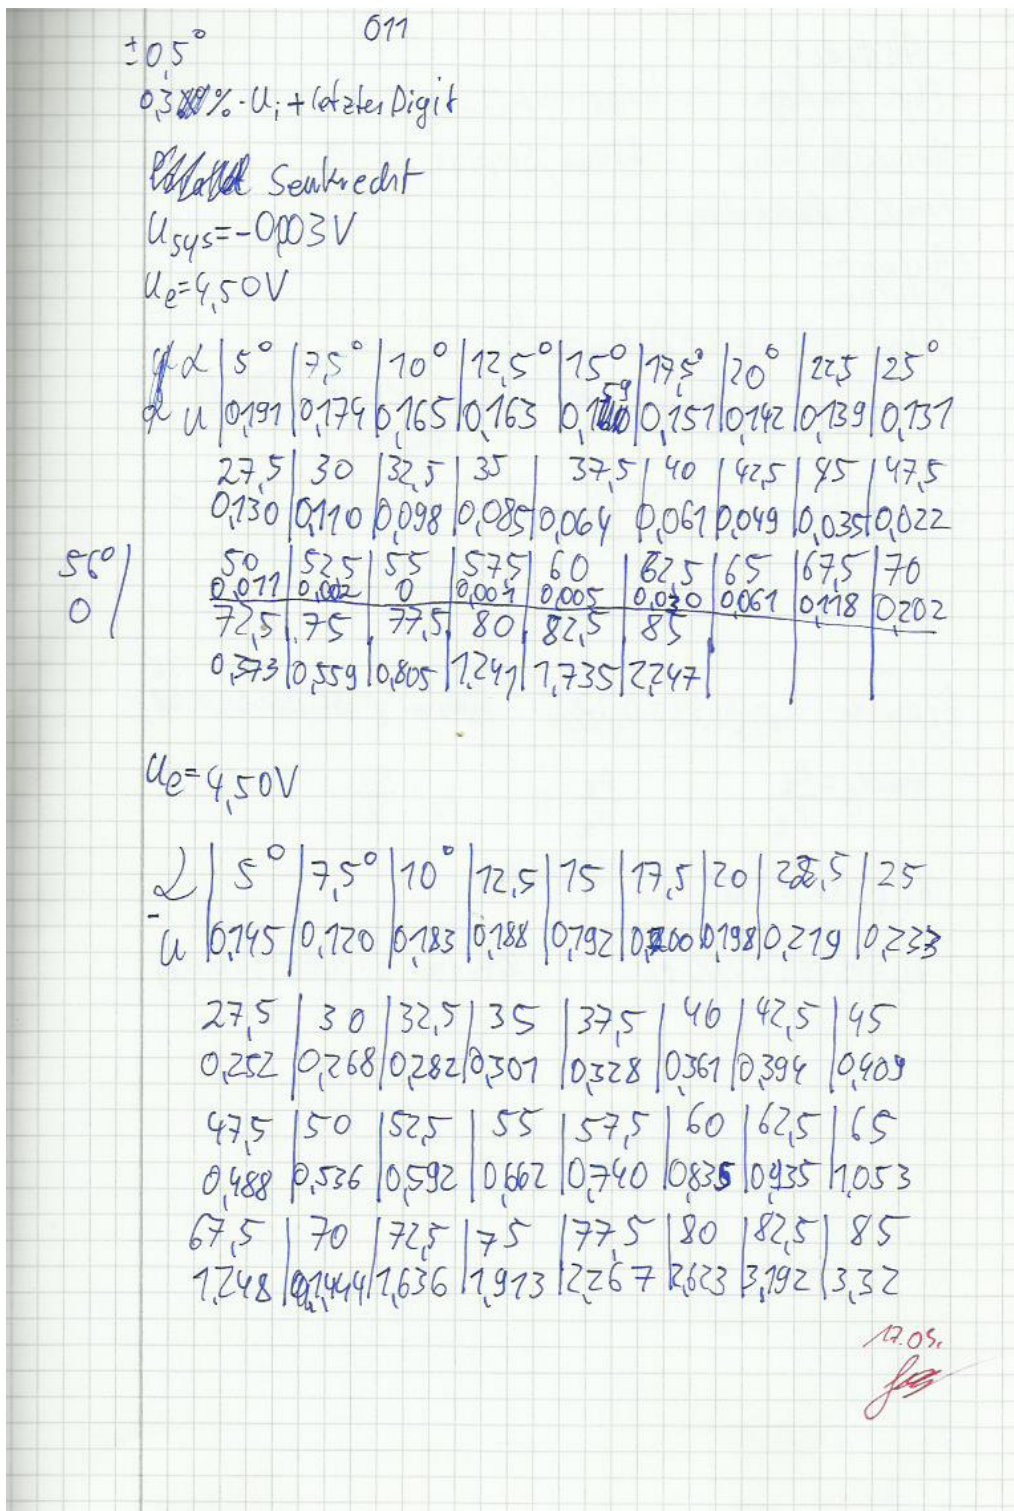 011
±0,5°
0,3 % · Ui + letztes Digit
Senkrecht
Usys = -0,003 V
Ue = 4,50 V
α | 5° | 7,5° | 10° | 12,5° | 15° | 17,5° | 20° | 22,5 | 25°
U | 0,191 | 0,174 | 0,165 | 0,163 | 0,159 | 0,151 | 0,142 | 0,139 | 0,131
27,5 | 30 | 32,5 | 35 | 37,5 | 40 | 42,5 | 45 | 47,5
0,130 | 0,110 | 0,098 | 0,085 | 0,064 | 0,061 | 0,049 | 0,035 | 0,022
56° | 50 | 52,5 | 55 | 57,5 | 60 | 62,5 | 65 | 67,5 | 70
0 | 0,011 | 0,002 | 0 | 0,001 | 0,005 | 0,030 | 0,061 | 0,118 | 0,202
72,5 | 75 | 77,5 | 80 | 82,5 | 85
0,373 | 0,559 | 0,805 | 1,241 | 1,735 | 2,247
Ue = 4,50 V
α | 5° | 7,5° | 10° | 12,5 | 15 | 17,5 | 20 | 22,5 | 25
U | 0,145 | 0,120 | 0,183 | 0,188 | 0,192 | 0,200 | 0,198 | 0,219 | 0,233
27,5 | 30 | 32,5 | 35 | 37,5 | 40 | 42,5 | 45
0,252 | 0,268 | 0,282 | 0,301 | 0,328 | 0,361 | 0,394 | 0,409
47,5 | 50 | 52,5 | 55 | 57,5 | 60 | 62,5 | 65
0,488 | 0,536 | 0,592 | 0,662 | 0,740 | 0,835 | 0,935 | 1,053
67,5 | 70 | 72,5 | 75 | 77,5 | 80 | 82,5 | 85
1,248 | 1,444 | 1,636 | 1,913 | 2,267 | 2,623 | 3,192 | 3,32
17.05.